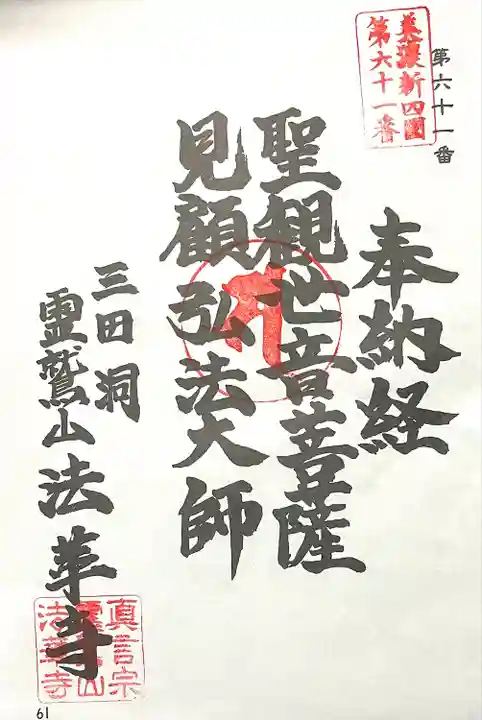 第六十一番
美濃新四國
第六十一番
奉納経
聖観世音菩薩
見顧弘法大師
三田洞
霊鷲山法華寺
真言宗
霊鷲山
法華寺
61